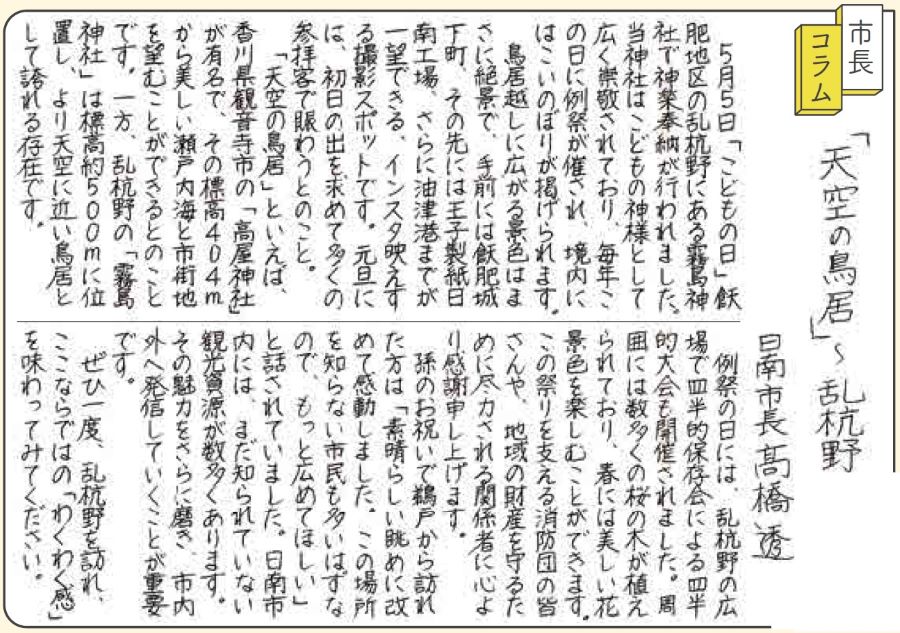 市長
コラム
「天空の鳥居」～乱杭野
日南市長 髙橋 透
５月５日「こどもの日」飫
肥地区の乱杭野にある霧島神
社で神楽奉納が行われました。
当神社はこどもの神様として
広く崇敬されており、毎年こ
の日に例祭が催され、境内に
はこいのぼりが掲げられます。
鳥居越しに広がる景色はま
さに絶景で、手前には飫肥城
下町、その先には王子製紙日
南工場、さらに油津港までが
一望できる、インスタ映えす
る撮影スポットです。元旦に
は、初日の出を求めて多くの
参拝客で賑わうとのこと。
「天空の鳥居」といえば、
香川県観音寺市の「高屋神社」
が有名で、その標高４０４ｍ
から美しい瀬戸内海と市街地
を望むことができるとのこと
です。一方、乱杭野の「霧島
神社」は標高約５００ｍに位
置し、より天空に近い鳥居と
して誇れる存在です。
例祭の日には、乱杭野の広
場で四半的保存会による四半
的大会も開催されました。周
囲には数多くの桜の木が植え
られており、春には美しい花
景色を楽しむことができます。
この祭りを支える消防団の皆
さんや、地域の財産を守るた
めに尽力される関係者に心よ
り感謝申し上げます。
孫のお祝いで鵜戸から訪れ
た方は「素晴らしい眺めに改
めて感動しました。この場所
を知らない市民も多いはずな
ので、もっと広めてほしい」
と話されていました。日南市
内には、まだ知られていない
観光資源が数多くあります。
その魅力をさらに磨き、市内
外へ発信していくことが重要
です。
ぜひ一度、乱杭野を訪れ、
ここならではの「わくわく感」
を味わってみてください。